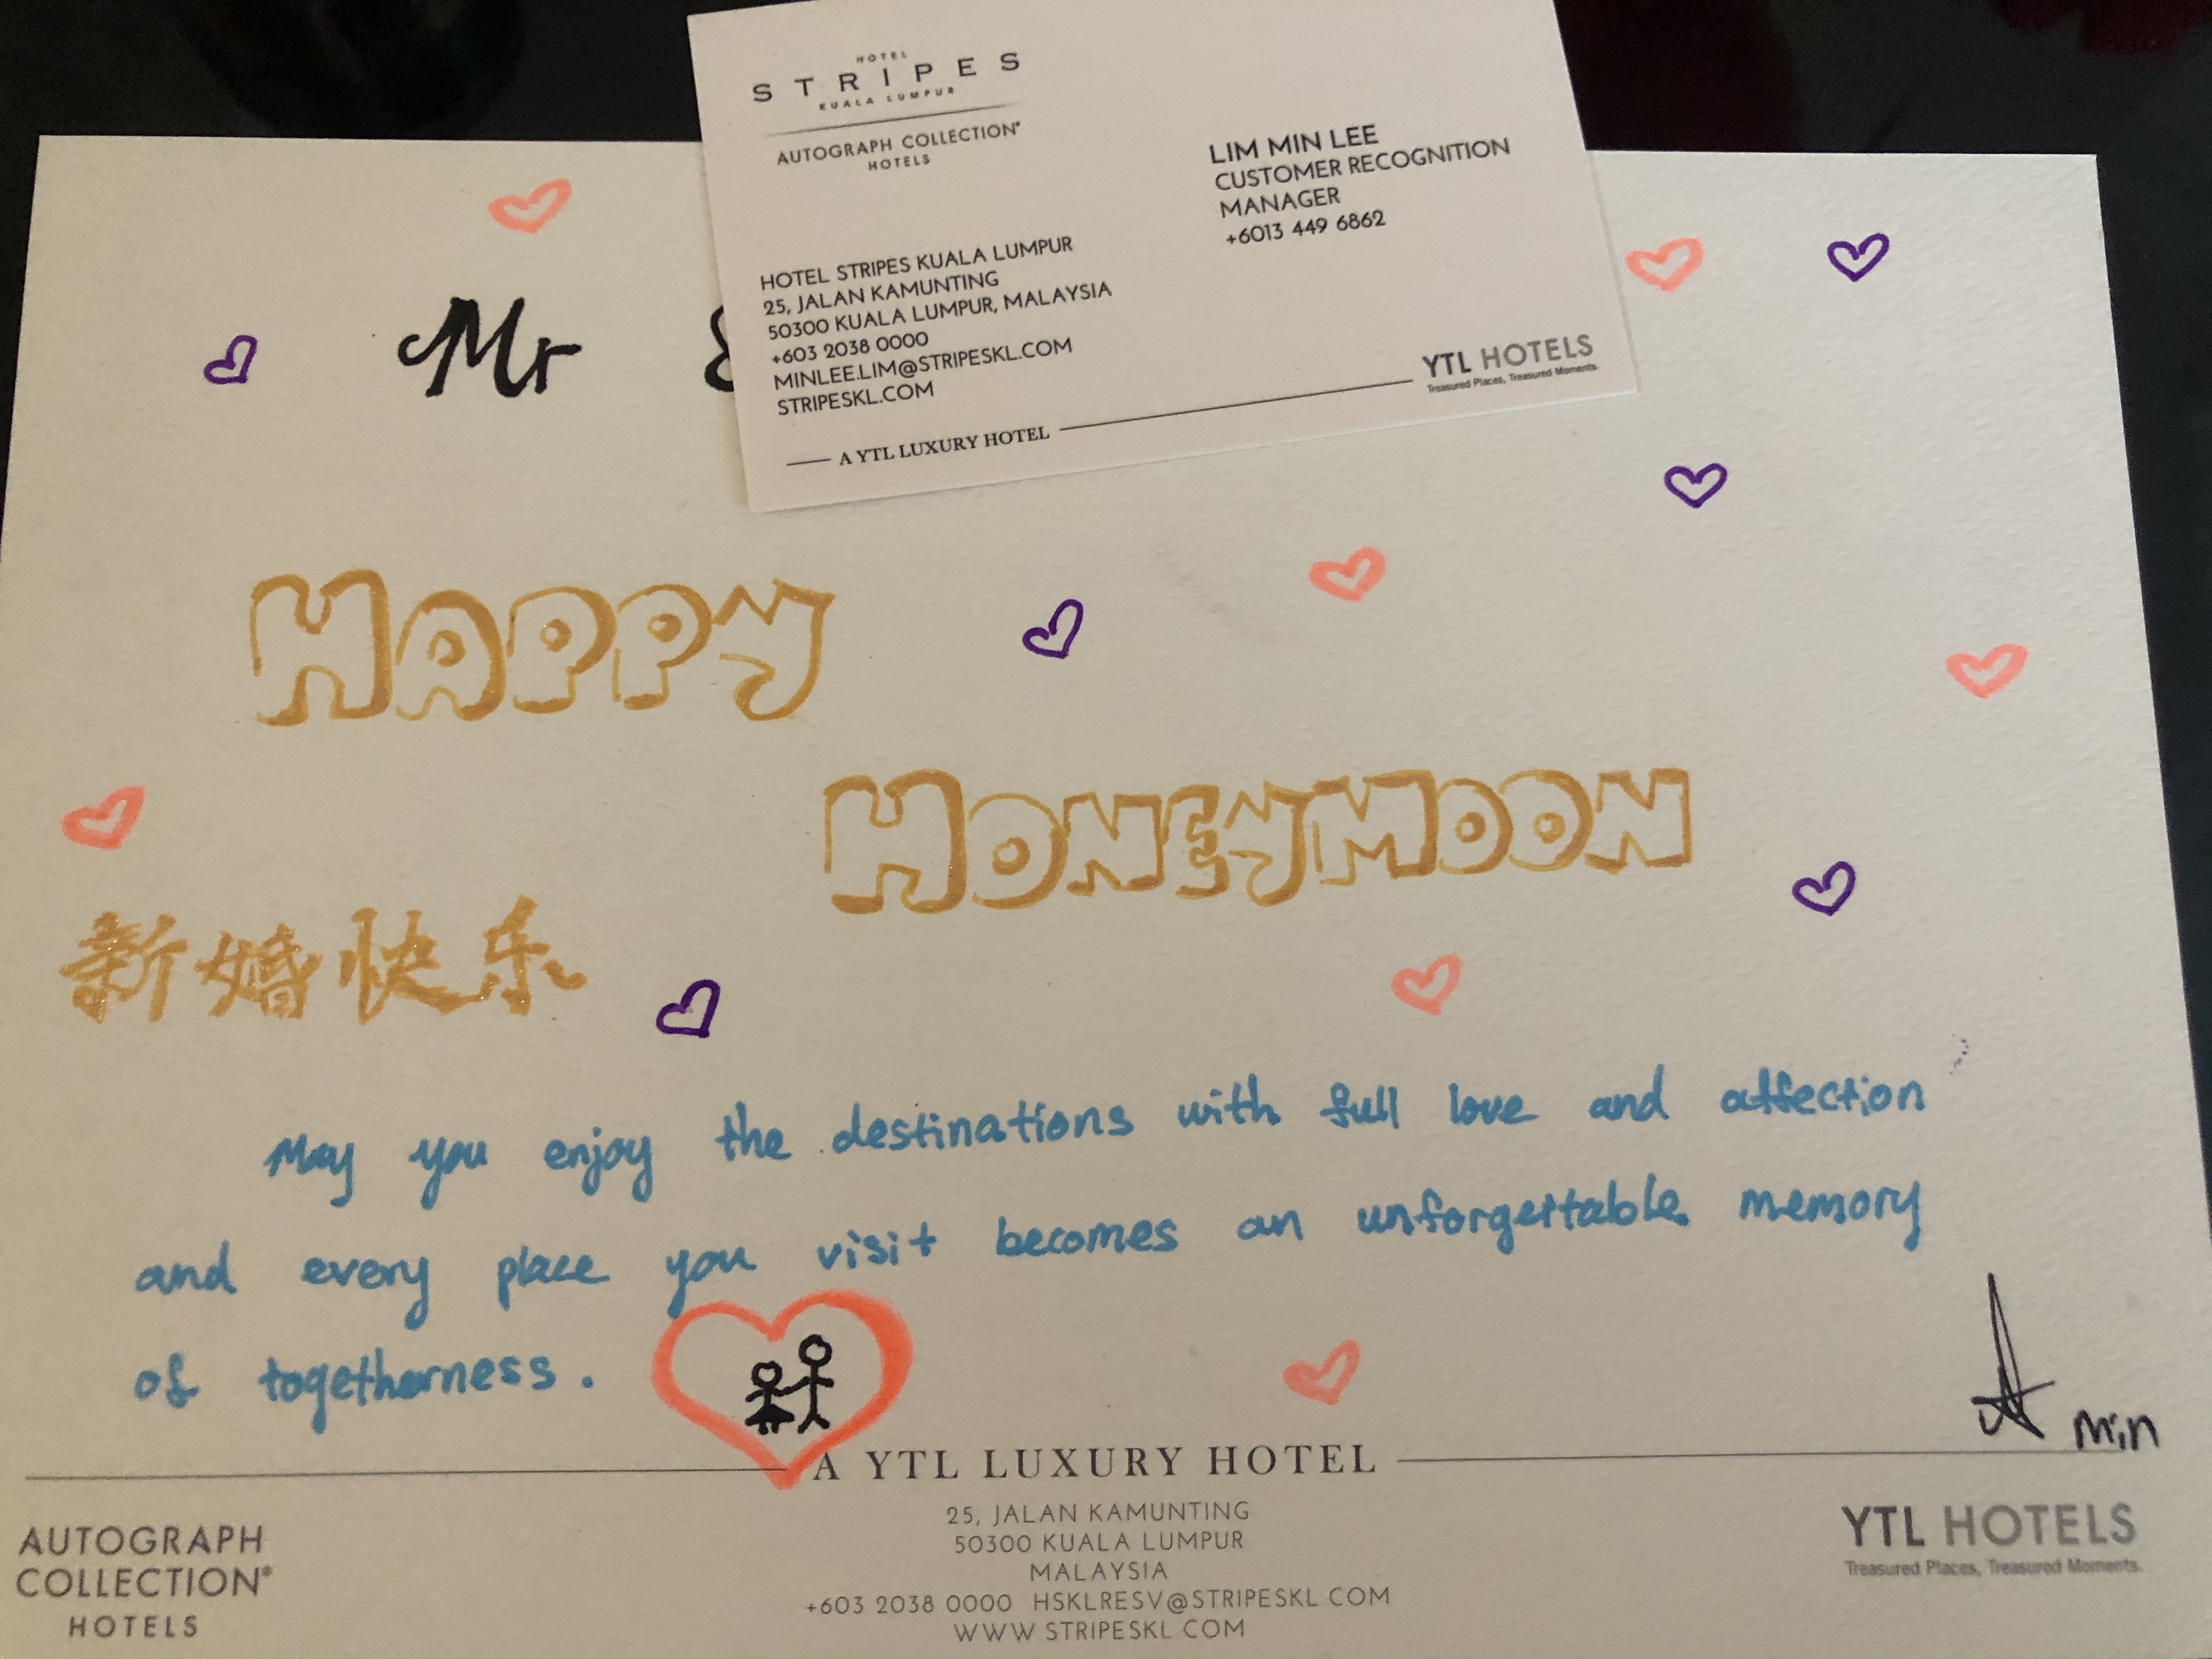 HOTEL
STRIPES
KUALA LUMPUR
AUTOGRAPH COLLECTION®
HOTELS
LIM MIN LEE
CUSTOMER RECOGNITION
MANAGER
+6013 449 6862
HOTEL STRIPES KUALA LUMPUR
25, JALAN KAMUNTING
50300 KUALA LUMPUR, MALAYSIA
+603 2038 0000
MINLEE.LIM@STRIPESKL.COM
STRIPESKL.COM
YTL HOTELS
Treasured Places, Treasured Moments.
A YTL LUXURY HOTEL
Mr &
HAPPY
HONEYMOON
新婚快乐
May you enjoy the destinations with full love and affection
and every place you visit becomes an unforgettable memory
of togetherness.
Min
A YTL LUXURY HOTEL
AUTOGRAPH
COLLECTION®
HOTELS
25, JALAN KAMUNTING
50300 KUALA LUMPUR
MALAYSIA
+603 2038 0000 HSKLRESV@STRIPESKL.COM
WWW.STRIPESKL.COM
YTL HOTELS
Treasured Places, Treasured Moments.